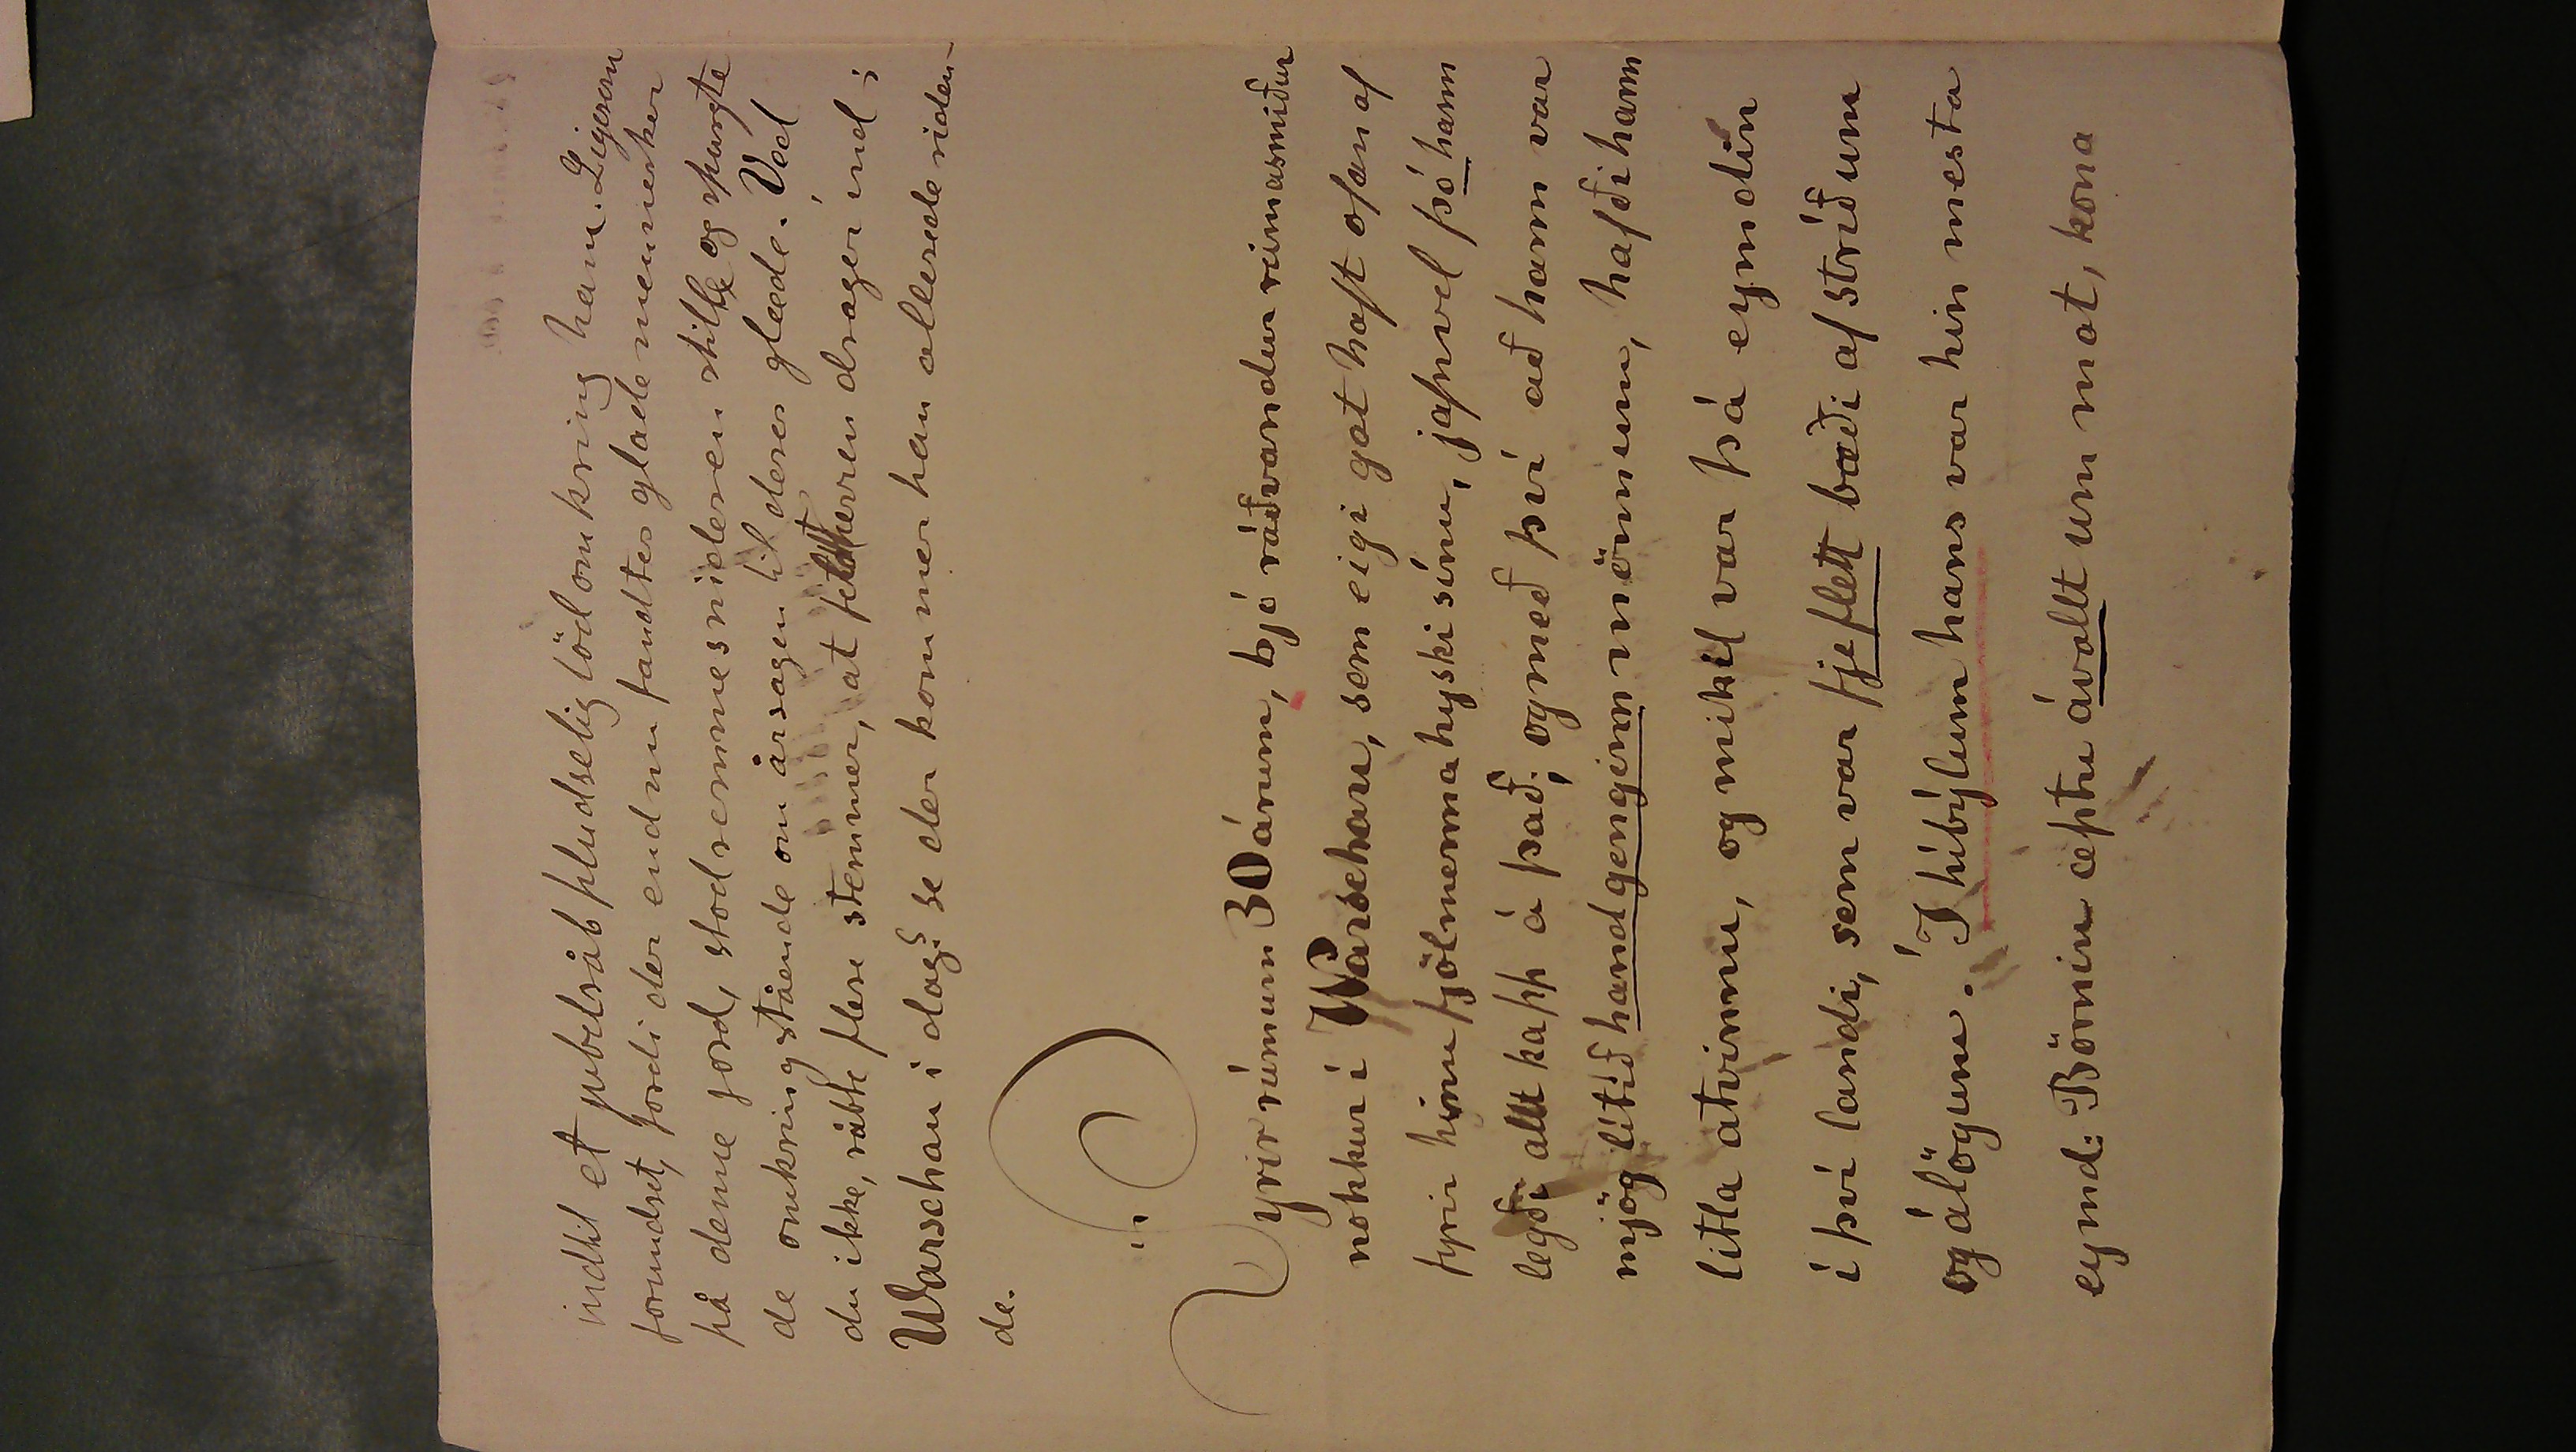 indtil et jubelråb pludselig löd omkring ham. Ligesom
forundret, fordi der endnu fandtes glade mennesker
på denne jord, stod remmesnideren stille og spurgte
de omkringstående om årsagen til deres glæde. Ved
du ikke, råbte flere stemmer, at feltherren drager ind i
Warschau i dag? se der kommer han allerede riden-
de.
Fyrir rúmum 30 árum, bjó ráðvandur reimasmiður
nokkur í Warschau, sem eigi gat haft ofan af
fyrir hinu fjölmenna hyski sínu, jafnvel þó hann
legði allt kapp á það; og með því að hann var
mjög lítið handgenginn mönnum, hafði hann
litla atvinnu, og mikil var þá eymdin
í því landi, sem var fjeflett bæði af stríðum
og álögum. Í híbýlum hans var hin mesta
eymd: Börnin æptu ávallt um mat, kona